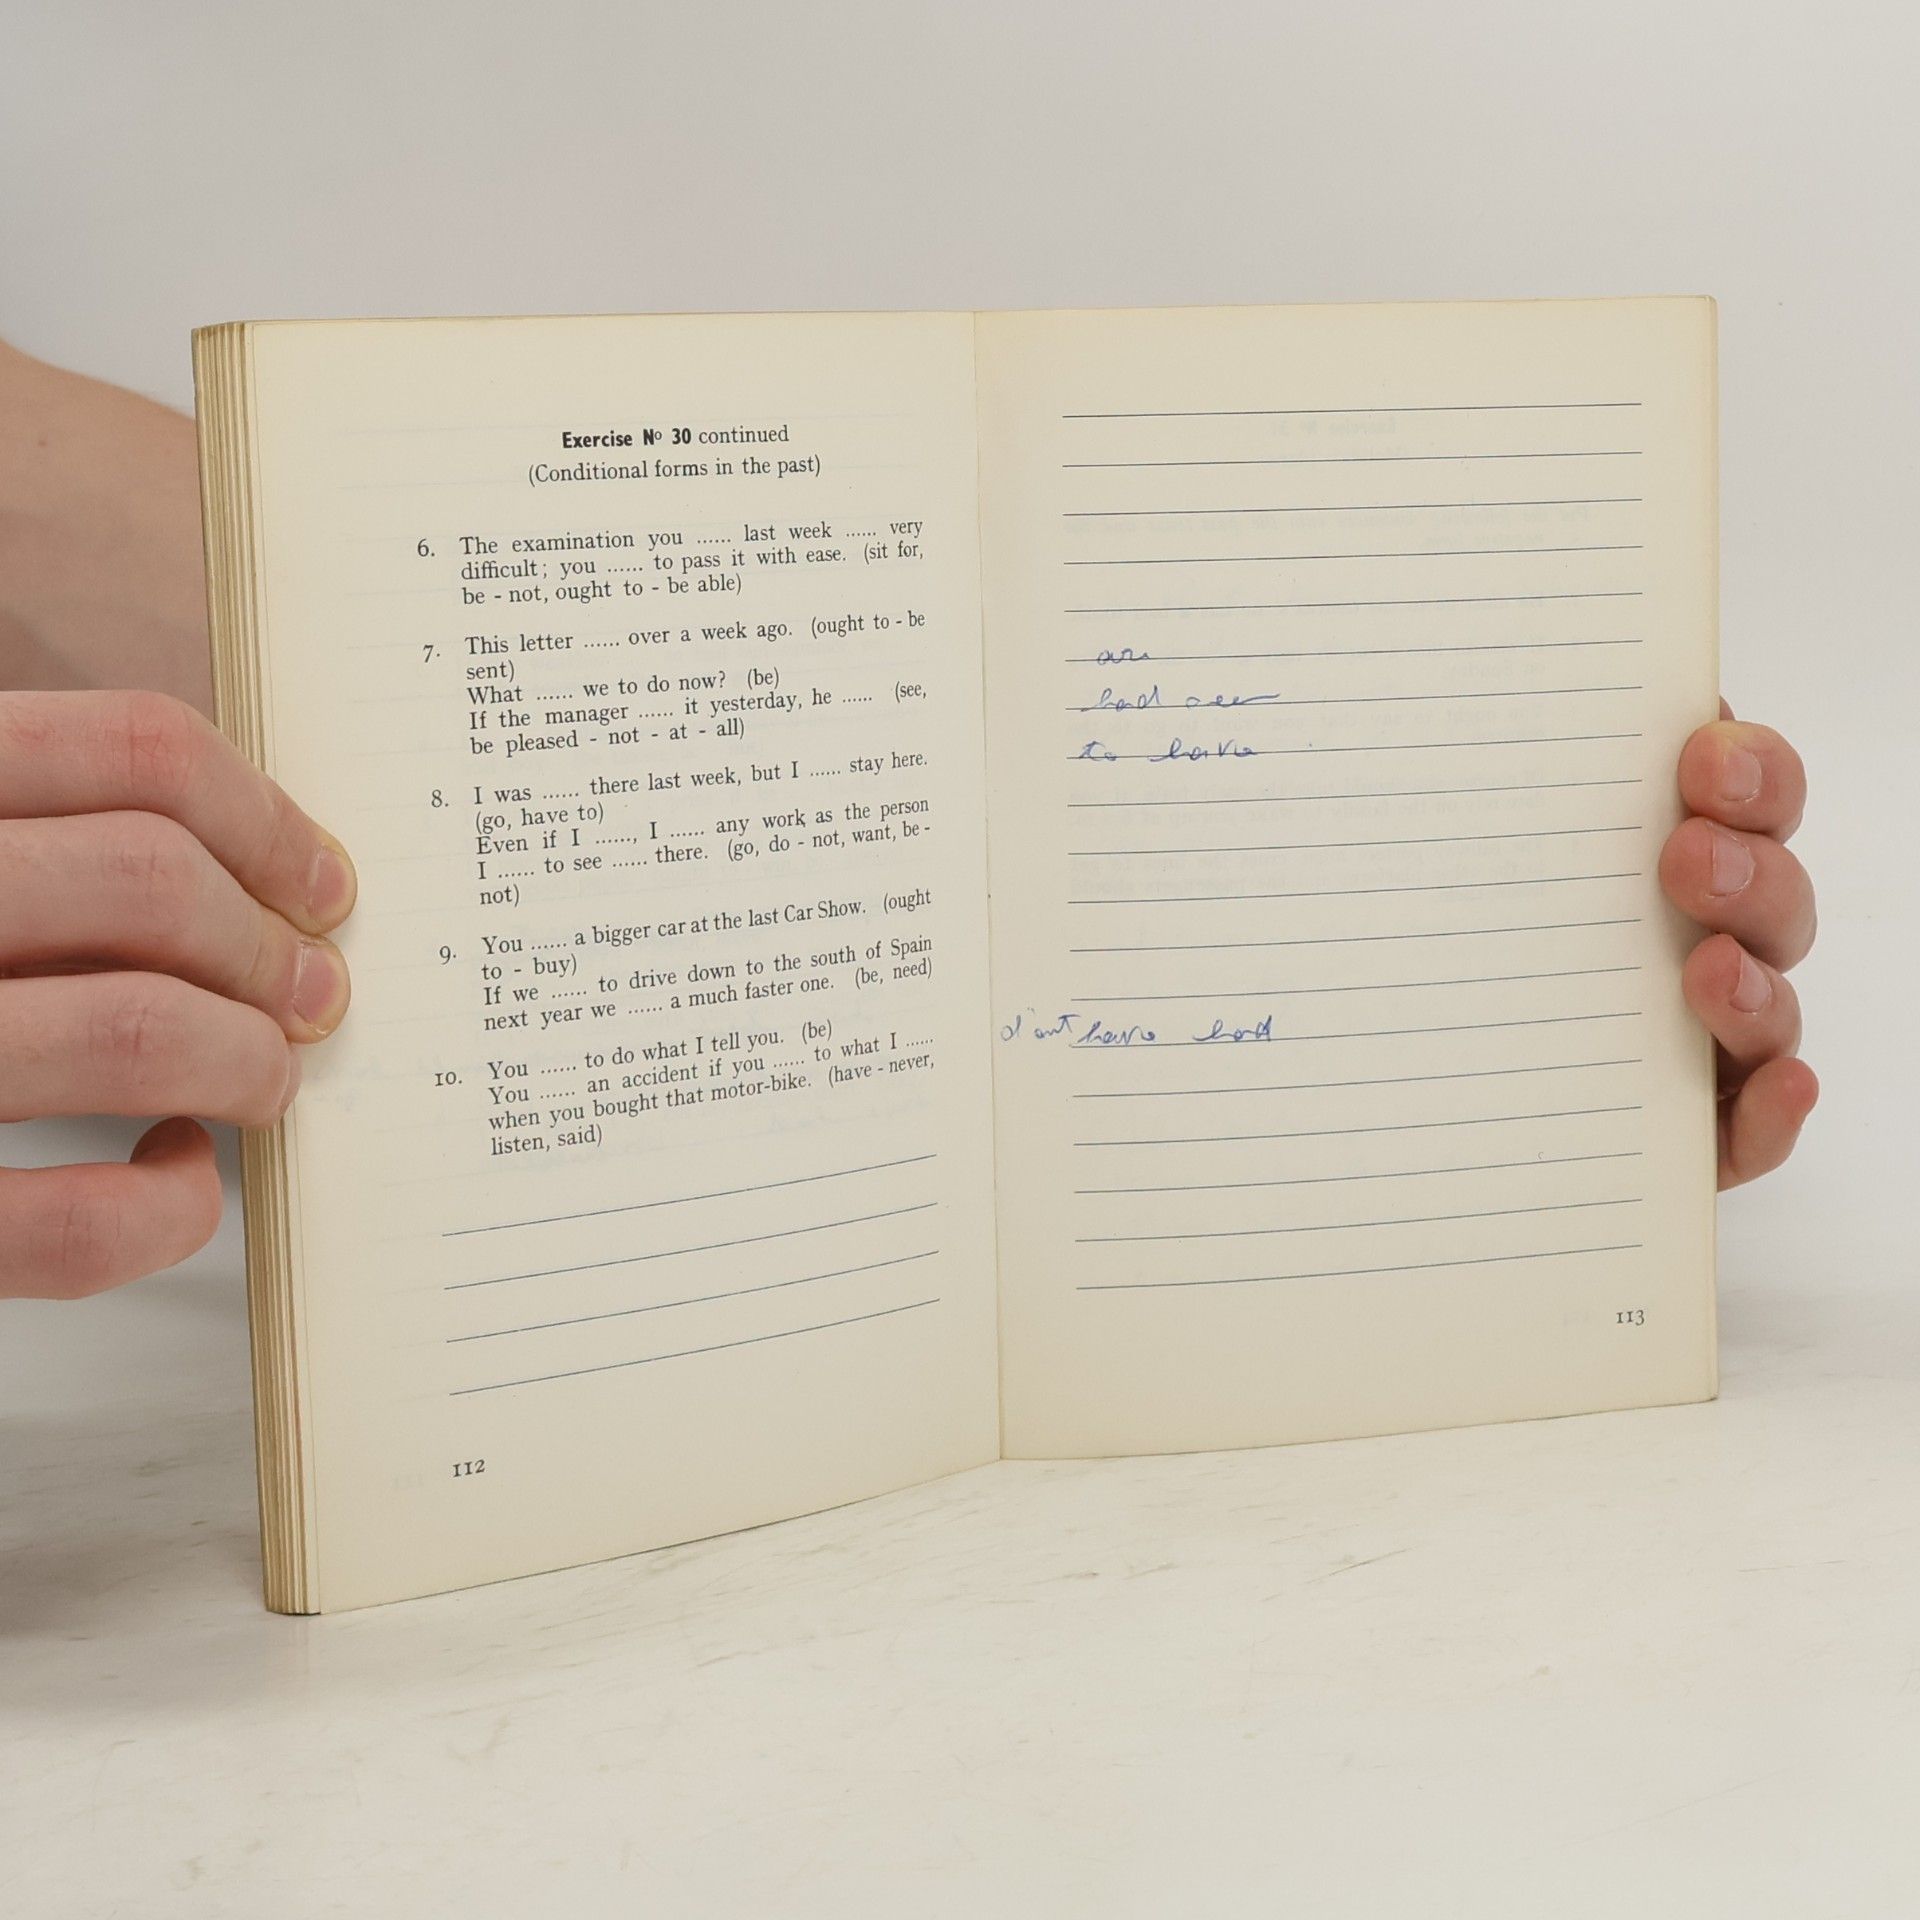 Exercise Nº 30 continued
(Conditional forms in the past)
6. The examination you ...... last week ...... very
difficult; you ...... to pass it with ease. (sit for,
be - not, ought to - be able)
7. This letter ...... over a week ago. (ought to - be
sent)
What ...... we to do now? (be)
If the manager ...... it yesterday, he ...... (see,
be pleased - not - at - all)
8. I was ...... there last week, but I ...... stay here.
(go, have to)
Even if I ......, I ...... any work as the person
I ...... to see ...... there. (go, do - not, want, be -
not)
9. You ...... a bigger car at the last Car Show. (ought
to - buy)
If we ...... to drive down to the south of Spain
next year we ...... a much faster one. (be, need)
10. You ...... to do what I tell you. (be)
You ...... an accident if you ...... to what I ......
when you bought that motor-bike. (have - never,
listen, said)
112
are
had seen
to have
d'ont have had
113